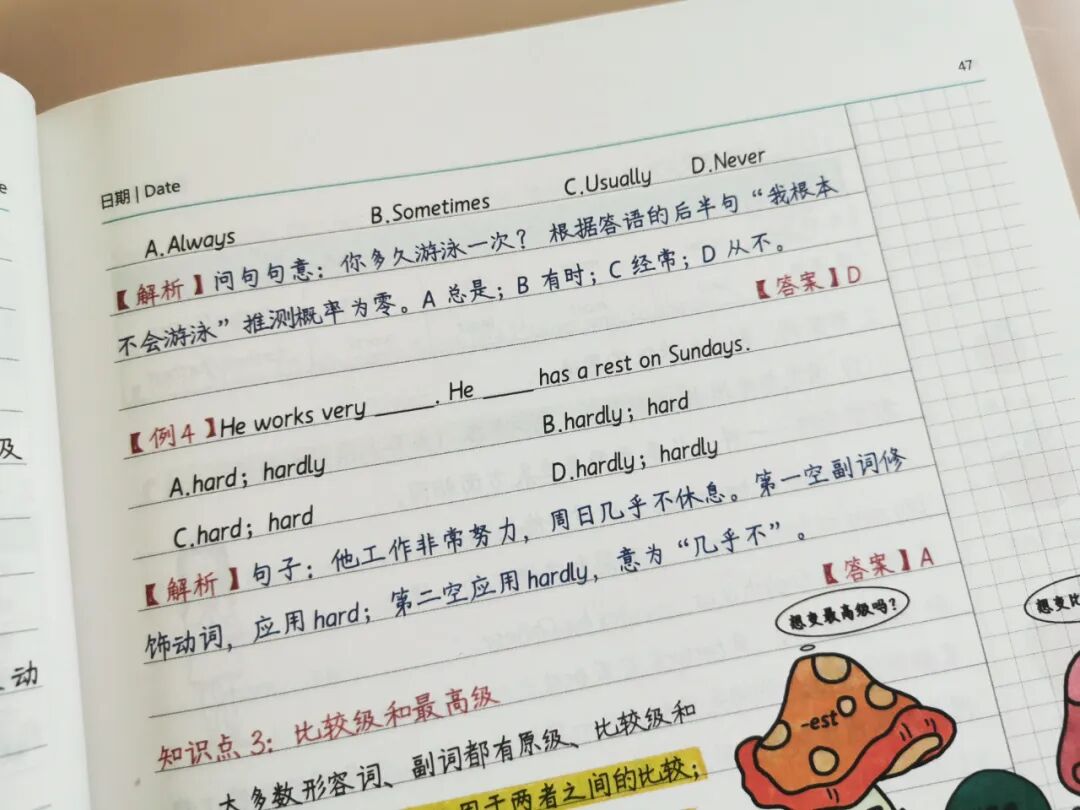 47
日期 | Date
A.Always B.Sometimes C.Usually D.Never
【解析】问句句意：你多久游泳一次？ 根据答语的后半句“我根本
不会游泳”推测概率为零。A 总是；B 有时；C 经常；D 从不。
【答案】D
【例4】He works very _____. He _____ has a rest on Sundays.
A.hard；hardly B.hardly；hard
C.hard；hard D.hardly；hardly
【解析】句子：他工作非常努力，周日几乎不休息。第一空副词修
饰动词，应用hard；第二空应用hardly，意为“几乎不”。
【答案】A
想变最高级吗？
想变比
-est
知识点3：比较级和最高级
大多数形容词、副词都有原级、比较级和
用于两者之间的比较；
e
及
动